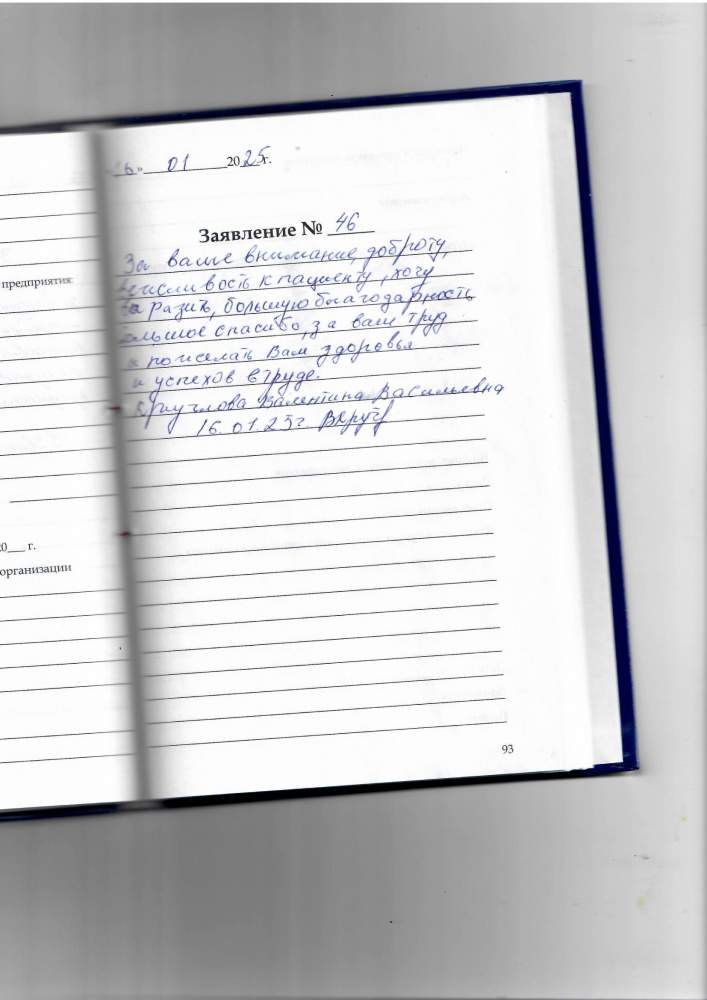 предприятия:
20___ г.
организации
16 » 01 2025г.
Заявление № 46
За ваше внимание, доброту,
к пациенту, хочу
разить, большую благодарность
спасибо, за ваш труд
и пожелать Вам здоровья
и успехов в труде.
Валентина Васильевна
16.01.25г.
93